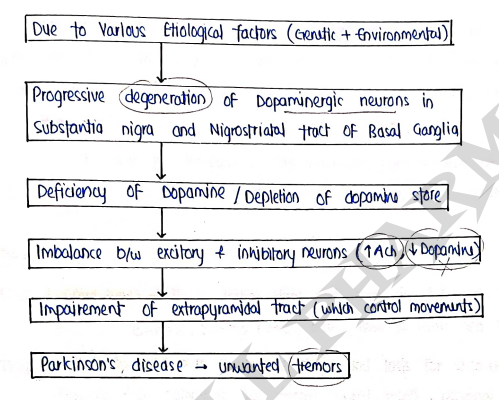 Due to Various Etiological factors (Genetic + Environmental)
Progressive degeneration of Dopaminergic neurons in
Substantia nigra and Nigrostriatal tract of Basal Ganglia
Deficiency of Dopamine / Depletion of dopamine store
Imbalance b/w excitory & inhibitory neurons (↑Ach, ↓Dopamine)
Impairement of extrapyramidal tract (which control movements)
Parkinson's disease → unwanted tremors